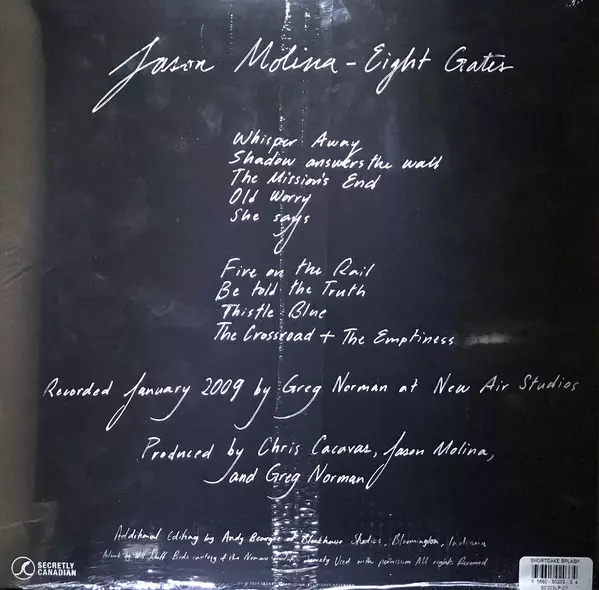 Jason Molina - Eight Gates
Whisper Away
Shadow answers the wall
The Mission's End
Old Worry
She says
Fire on the Rail
Be told the Truth
Thistle Blue
The Crossroad + The Emptiness
Recorded January 2009 by Greg Norman at New Air Studios
Produced by Chris Cacavas, Jason Molina,
and Greg Norman
Additional Editing by Andy Beargie at Blockhouse Studios, Bloomington, Indiana
Artwork by Will Birds courtesy of the Used with permission All rights Reserved
SECRETLY
CANADIAN
SHORTCAKE SPLASH